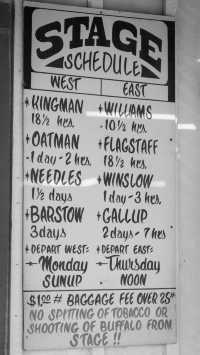 STAGE
SCHEDULE
WEST EAST
KINGMAN WILLIAMS
18½ hrs. 10½ hrs.
OATMAN FLAGSTAFF
1 day - 2 hrs. 18½ hrs.
NEEDLES WINSLOW
1½ days 1 day - 3 hrs.
BARSTOW GALLUP
3 days 2 days - 7 hrs
DEPART WEST: DEPART EAST:
Monday Thursday
SUNUP NOON
$1.00 # BAGGAGE FEE OVER 25#
NO SPITTING OF TOBACCO OR
SHOOTING OF BUFFALO FROM
STAGE !!